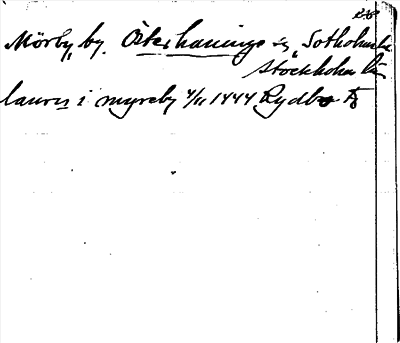 Mörby, by. Österhanings sn, Sotholms
Stockholms län
laurus i myreby 4/11 1444 Rydbo